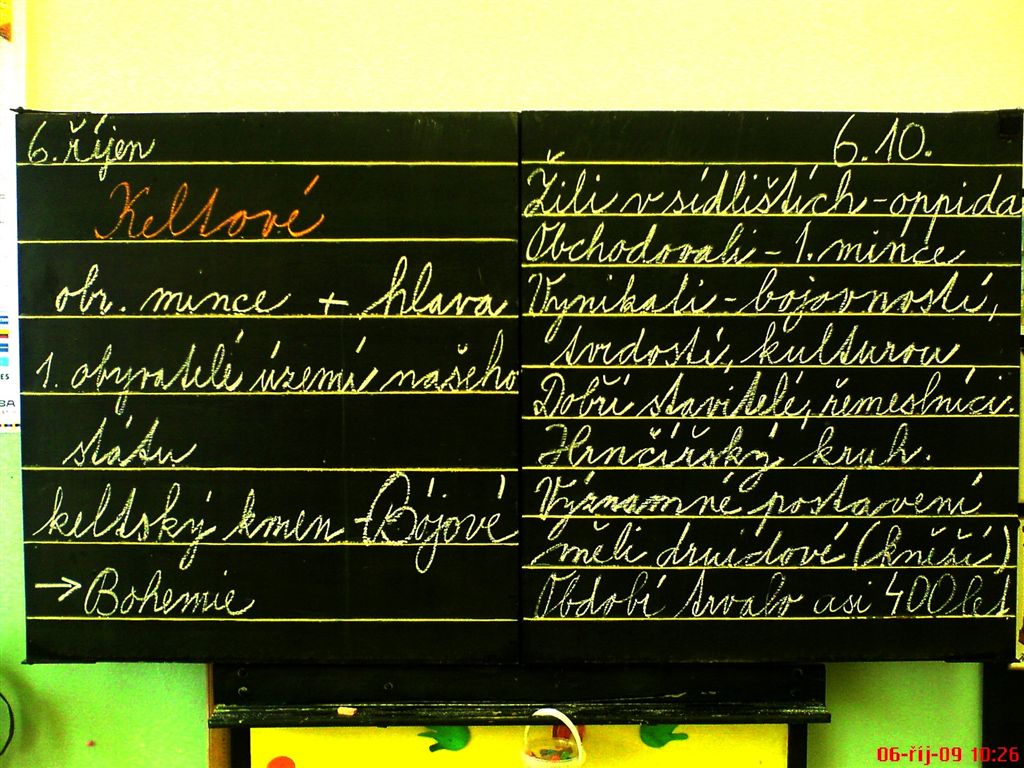 6. říjen
Keltové
obr. mince + hlava
1. obyvatelé území našeho
státu
keltský kmen - Bójové
→ Bohemie
6.10.
Žili v sídlištích - oppida
Obchodovali - 1. mince
Vynikali - bojovností,
tvrdostí, kulturou
Dobří stavitelé, řemeslníci.
Hrnčířský kruh.
Významné postavení
měli druidové (kněží)
Období trvalo asi 400 let
06-říj-09 10:26